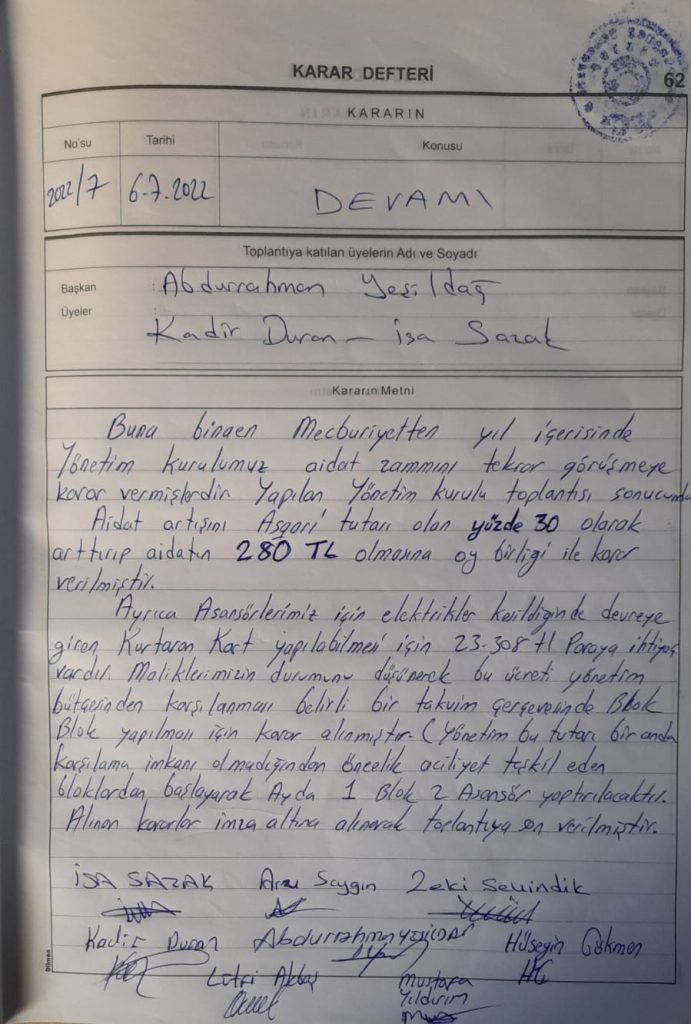 KARAR DEFTERİ
62
KARARIN
No'su
Tarihi
Konusu
2022/7
6.7.2022
DEVAMI
Toplantıya katılan üyelerin Adı ve Soyadı
Başkan : Abdurrahman Yeşildağ
Üyeler : Kadir Duran - İsa Sazak
Kararın Metni
Buna binaen Mecburiyetten yıl içerisinde
Yönetim Kurulumuz aidat zammını tekrar görüşmeye
karar vermişlerdir. Yapılan Yönetim kurulu toplantısı sonucunda
Aidat artışını Asgari tutarı olan yüzde 30 olarak
arttırıp aidatın 280 TL olmasına oy birliği ile karar
verilmiştir.
Ayrıca Asansörlerimiz için elektrikler kesildiğinde devreye
giren Kurtaran Kart yapılabilmesi için 23.308 tl Paraya ihtiyaç
vardır. Maliklerimizin durumunu düşünerek bu ücreti yönetim
bütçesinden karşılanması belirli bir takvim çerçevesinde Blok
Blok yapılması için karar alınmıştır. (Yönetim bu tutarı bir anda
karşılama imkanı olmadığından öncelik aciliyet teşkil eden
bloklardan başlayarak Ayda 1 Blok 2 Asansör yaptırılacaktır.
Alınan kararlar imza altına alınarak toplantıya son verilmiştir.
İSA SAZAK Arzu Saygın Zeki Sevindik
Kadir Duran Abdurrahman YEŞİLDAĞ Hüseyin Gökmen
Lütfi Akbaş Mustafa
Yıldırım
Dilman